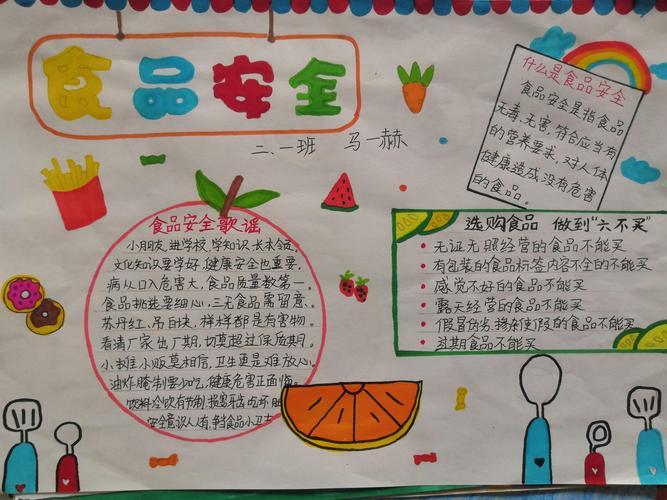 食品安全
二、一班 马一赫
什么是食品安全
食品安全是指食品
无毒、无害，符合应当有
的营养要求，对人体
健康造成没有危害
的食品。
食品安全歌谣
小朋友，进学校，学知识，长本领，
文化知识要学好，健康安全也重要，
病从口入危害大，食品质量数第一。
食品挑选要细心，三无食品需留意。
苏丹红、吊白块，样样都是有害物。
看清厂家出厂期，切莫超过保质期。
小摊小贩莫相信，卫生更是难放心。
油炸腌制要少吃，健康危害正面临。
饮料冷饮有节制，损害牙齿
安全意识人人有，争当食品小卫士
选购食品 做到“六不买”
无证无照经营的食品不能买
有包装的食品标签内容不全的不能买
感觉不好的食品不能买
露天经营的食品不能买
假冒伪劣、掺杂使假的食品不能买
过期食品不能买